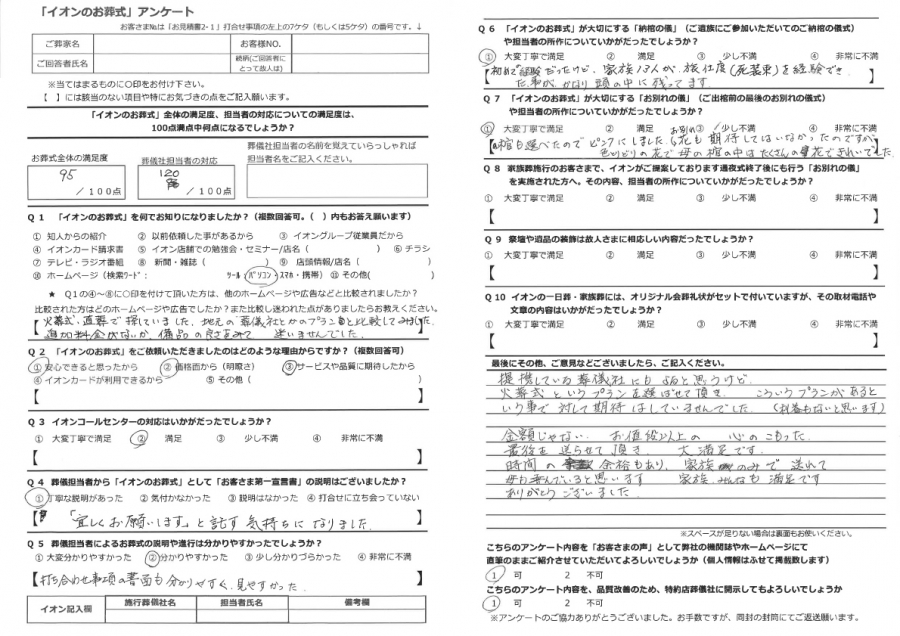 「イオンのお葬式」アンケート
お客さまNo.は「お見積書2-1」打合せ事項の左上の7ケタ(もしくは5ケタ)の番号です。↓
ご葬家名
お客様NO.
ご回答者氏名
続柄(ご回答者にとって故人は)
※当てはまるものに○印をお付け下さい。
【 】には該当のない項目や特にお気づきの点をご記入願います。
「イオンのお葬式」全体の満足度、担当者の対応についての満足度は、
100点満点中何点になるでしょうか?
お葬式全体の満足度
葬儀社担当者の対応
葬儀社担当者の名前を覚えていらっしゃれば
担当者名をご記入ください。
95 /100点
120 /100点
Q1 「イオンのお葬式」を何でお知りになりましたか?(複数回答可。( )内もお答え願います)
① 知人からの紹介 ② 以前依頼した事があるから ③ イオングループ従業員だから
④ イオンカード請求書 ⑤ イオン店舗での勉強会・セミナー/店名( ) ⑥ チラシ
⑦ テレビ・ラジオ番組 ⑧ 新聞・雑誌( ) ⑨ 店頭情報/店名( )
⑩ ホームページ(検索ワード: ツール パソコン・スマホ・携帯) ⑪ その他( )
★ Q1の④~⑧に○印を付けて頂いた方は、他のホームページや広告などと比較されましたか?
比較された方はどのホームページや広告でしたか?また比較し迷われた点がありましたらお教えください。
【火葬式・直葬で探していました。地元の葬儀社とかのプランと比較してみました。
追加料金がないか、備品の良さをみて 迷いませんでした。】
Q2 「イオンのお葬式」をご依頼いただきましたのはどのような理由からですか?(複数回答可)
①安心できると思ったから ②価格面から(明瞭さ) ③サービスや品質に期待したから
④イオンカードが利用できるから ⑤その他( )
【 】
Q3 イオンコールセンターの対応はいかがだったでしょうか?
① 大変丁寧で満足 ② 満足 ③ 少し不満 ④ 非常に不満
【 】
Q4 葬儀担当者から「イオンのお葬式」として「お客さま第一宣言書」の説明はございましたか?
①丁寧な説明があった ②気付かなかった ③説明はなかった ④打合せに立ち会っていない
【「宜しくお願いします」と託す気持ちになりました。】
Q5 葬儀担当者によるお葬式の説明や進行は分かりやすかったでしょうか?
①大変分かりやすかった ②分かりやすかった ③少し分かりづらかった ④非常に不満
【打ち合わせ事項の書面も分かりやすく、見やすかった。】
イオン記入欄
施行葬儀社名
担当者氏名
備考欄
Q6 「イオンのお葬式」が大切にする「納棺の儀」(ご遺族にご参加いただいてのご納棺の儀式)
や担当者の所作についていかがだったでしょうか?
① 大変丁寧で満足 ② 満足 ③ 少し不満 ④ 非常に不満
【初めて経験だったけど、家族 が、旅仕度(死装束)を経験でき
た事が、かなり頭の中に残ってます。】
Q7 「イオンのお葬式」が大切にする「お別れの儀」(ご出棺前の最後のお別れの儀式)
や担当者の所作についていかがだったでしょうか?
① 大変丁寧で満足 ② 満足 ③ 少し不満 ④ 非常に不満
【棺も選べたのでピンクにしました。お別れ花も期待してはいなかったのですが、
色とりどりの花で母の棺の中はたくさんの お花できれいでした。】
Q8 家族葬施行のお客さまで、イオンがご提案しております通夜式終了後にも行う「お別れの儀」
を実施された方へ。その内容、担当者の所作についていかがだったでしょうか?
① 大変丁寧で満足 ② 満足 ③ 少し不満 ④ 非常に不満
【 】
Q9 祭壇や遺品の装飾は故人さまに相応しい内容だったでしょうか?
① 大変丁寧で満足 ② 満足 ③ 少し不満 ④ 非常に不満
【 】
Q10 イオンの一日葬・家族葬には、オリジナル会葬礼状がセットで付いていますが、その取材電話や
文章の内容はいかがだったでしょうか?
① 大変丁寧で満足 ② 満足 ③ 少し不満 ④ 非常に不満
【 】
最後にその他、ご意見などございましたら、ご記入ください。
提携している葬儀社にもよると思うけど、
火葬式というプランを選ばせて頂き、 こういうプランがあると
いう事で 対して期待はしていませんでした。(お通夜もないと思います)
金額じゃない、 お値段以上の 心のこもった
最後を送らせて頂き、 大満足です。
時間の 余裕もあり、家族のみで送れて
母も喜んでいると思います 家族みんなも満足です
ありがとうございました。
※スペースが足りない場合は裏面もお使いください。
こちらのアンケート内容を「お客さまの声」として弊社の機関誌やホームページにて
直筆のままご紹介させていただいてよろしいでしょうか(個人情報はふせて掲載致します)
1 可 2 不可
こちらのアンケート内容を、品質改善のため、特約店葬儀社に開示してもよろしいでしょうか
1 可 2 不可
※アンケートのご協力ありがとうございました。お手数ですが、同封の封筒にてご返送願います。